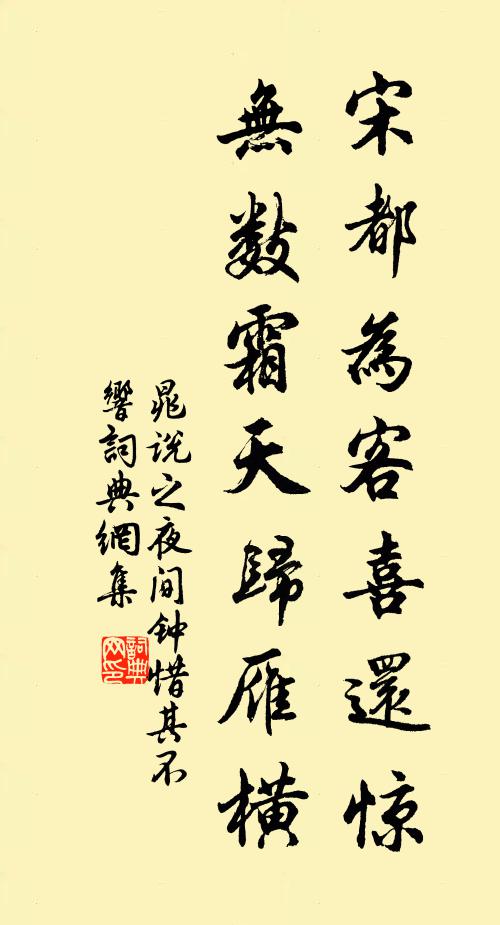 宋都為客喜還惊
無數霜天歸雁横
晁说之夜间钟惜其不
響詞典網集
詞典網印